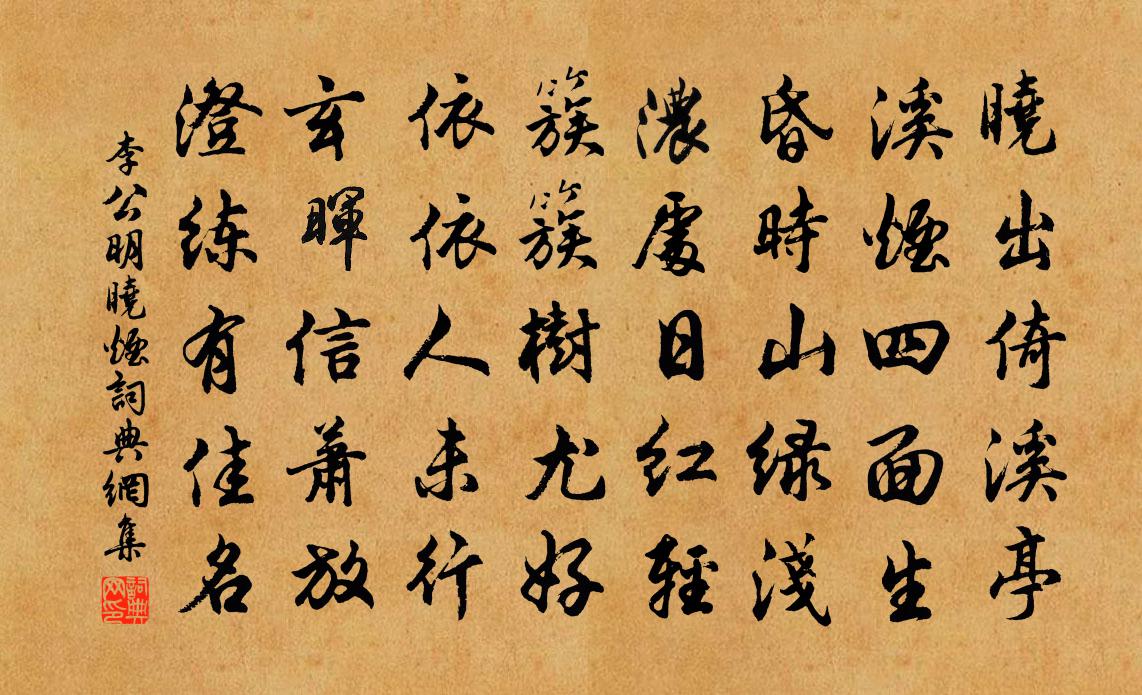 曉出倚溪亭
溪煙四面生
昏時山緑淺
濃處日紅輕
簇簇樹尤好
依依人未行
玄暉信蕭放
澄练有佳名
李公明曉煙詞典網集
詞典网印